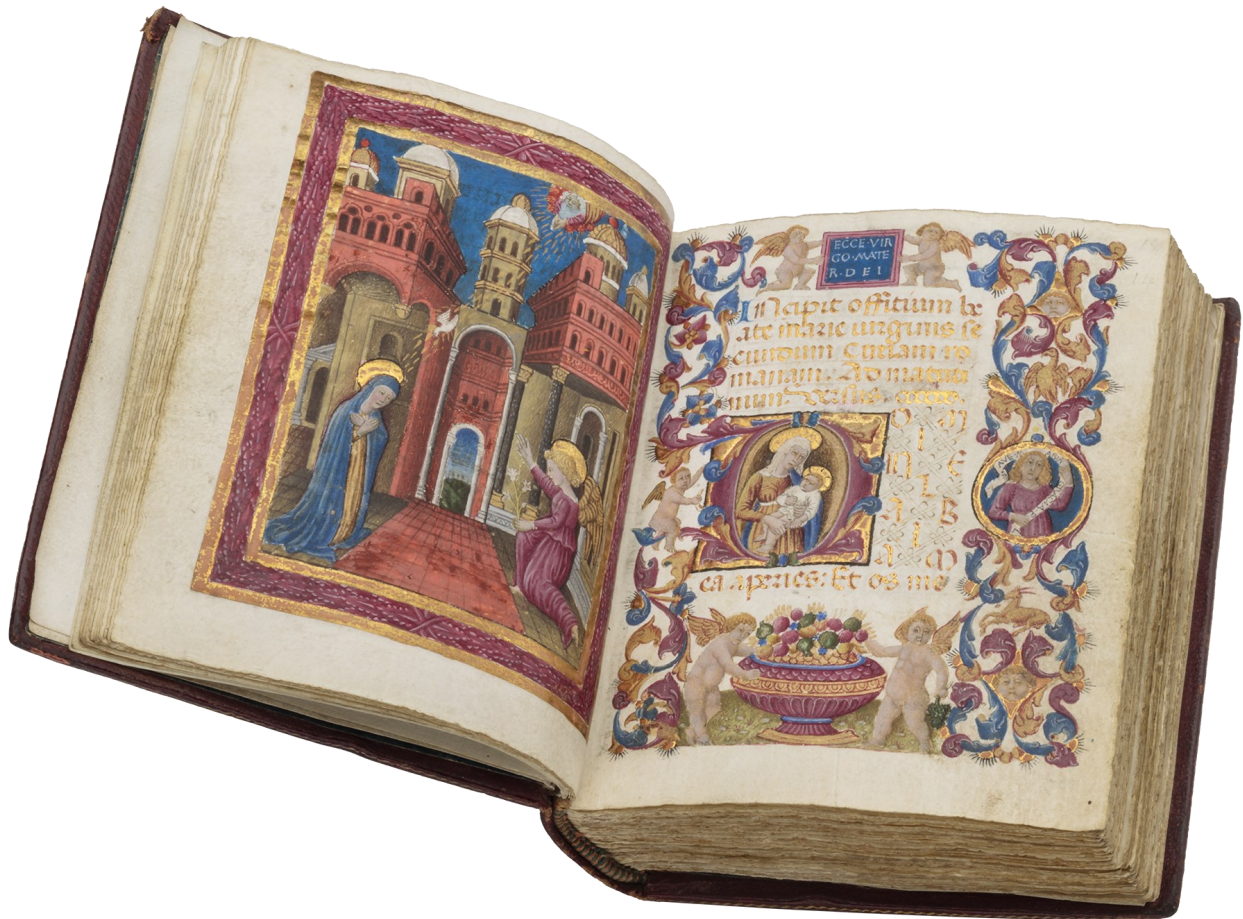 ECCE·VIR
GO·MATE
R·D·E I
Incipit offitium be
ate marie virginis se
cundum curiam ro
manam. Ad matuti
num. Versus.
DO M
I
N E
L
A B
I
A M
ea aperies: Et os me